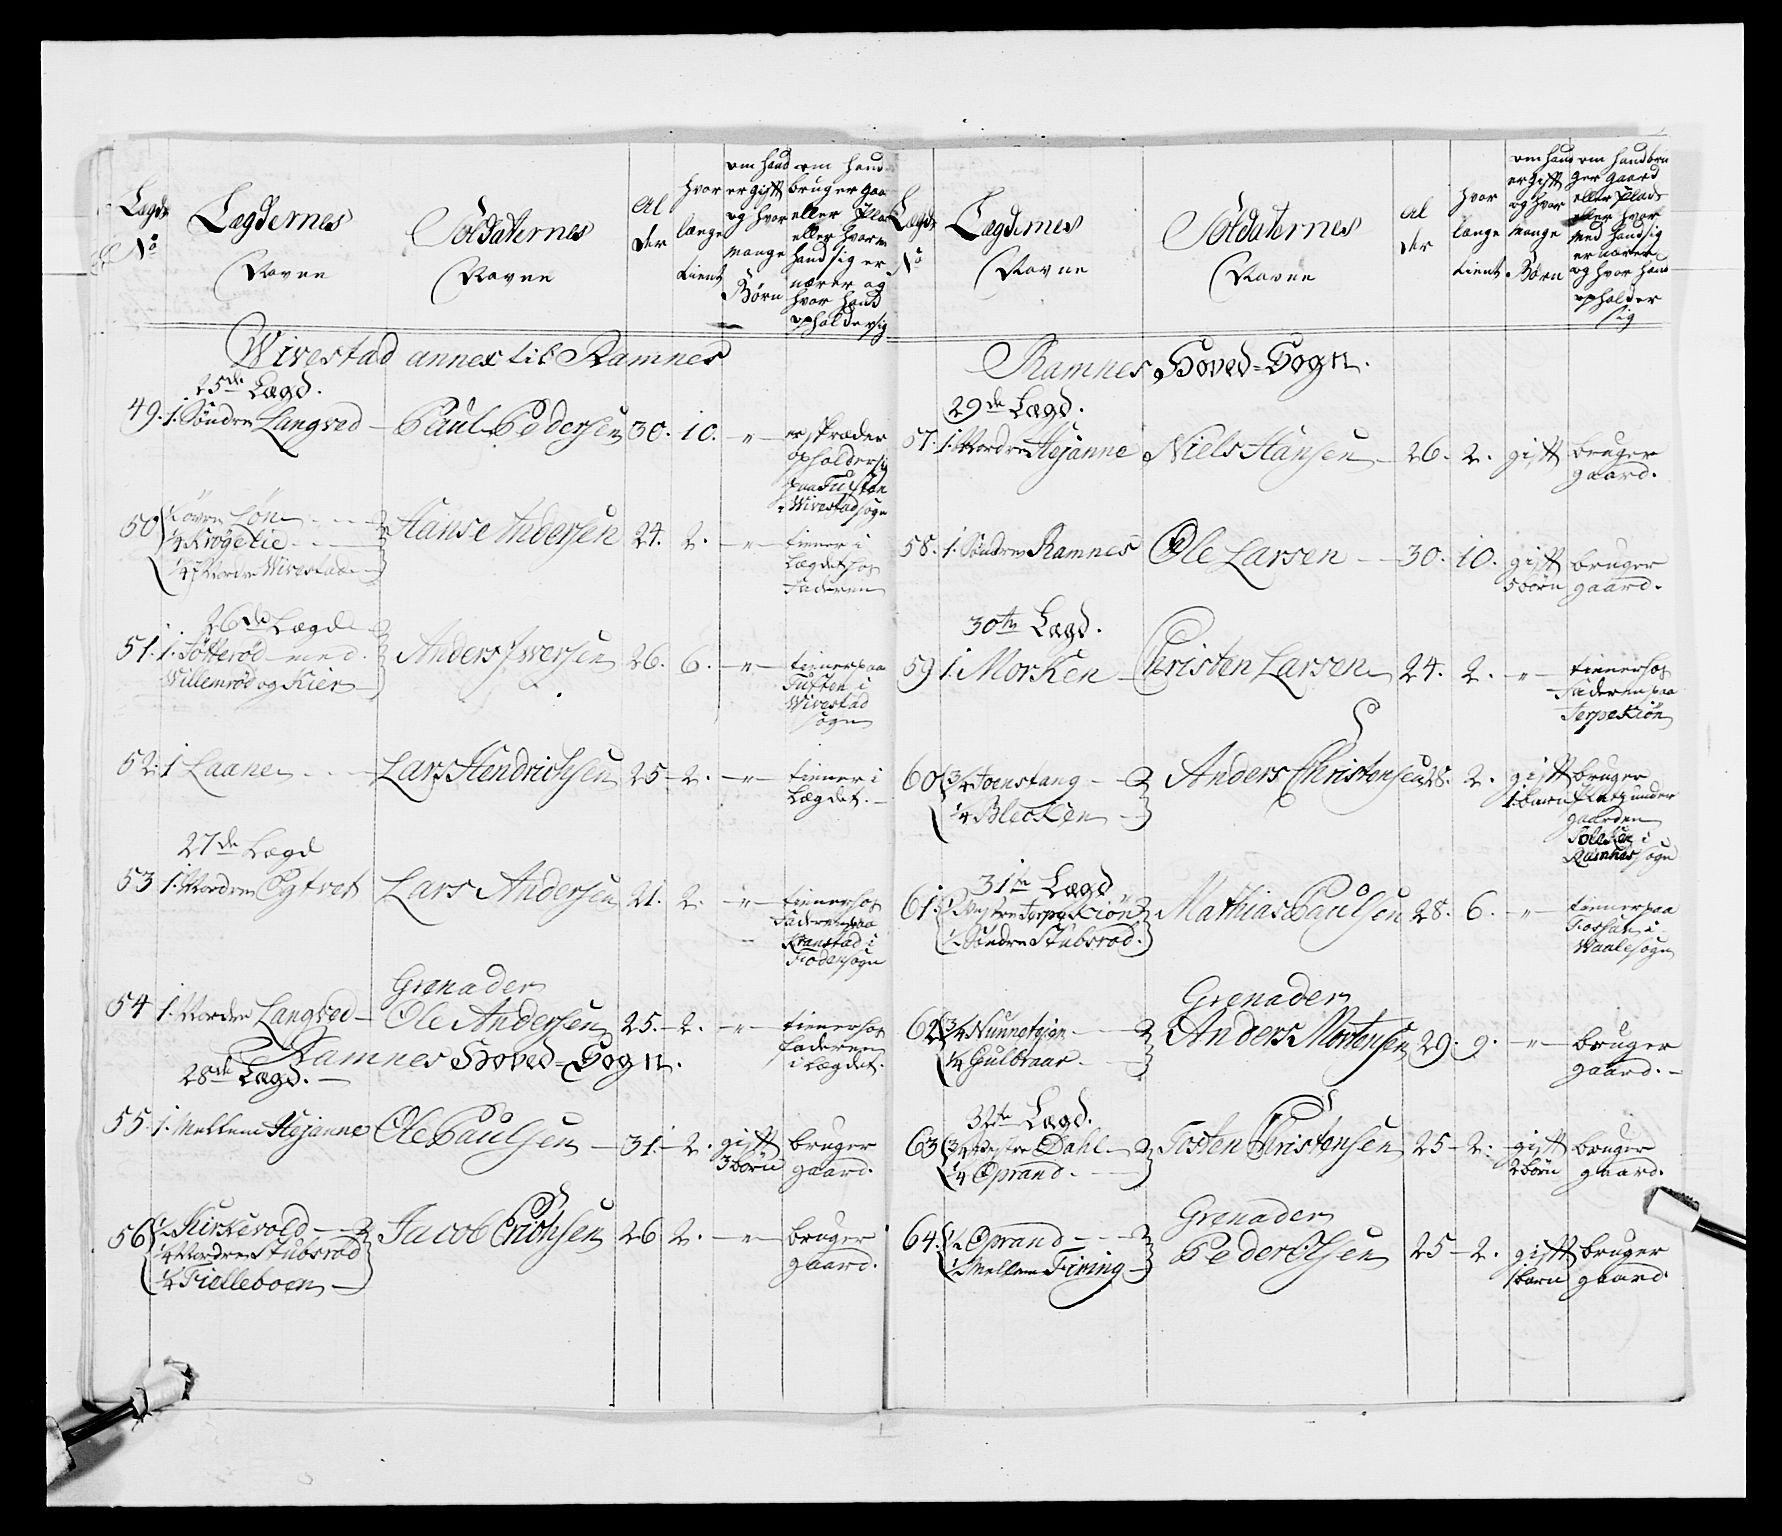 Lægds No
Lægdernes Navne
Soldaternes Navne
Alder
hvor længe tient
om hand er gift og hvor mange Børn
om hand bruger gaa eller Plas eller hvorm hand sig ernærer og hvor hand opholder sig
Wivestad annex til Ramnes
25de Lægd.
49. 1. Søndre Langved – Paul Pedersen 30. 10. –"–
er skræder
opholder sig
paa Tufte
Wivestad sogn
50 Løvre Løne
1/4 Krogelie
1/4 Nordre Wivestad
Hans Andersen 24. 2. –"–
tiener i
Lægdet hos
Faderen
26de Lægd
51. 1. Tøtterød med
Willemrød og Kier
Anders Iversen 26. 6. –"–
tiener paa
Tuften i
Wivestad
sogn
52. 1 Laane – Lars Hendrichsen 25 – 2. –"–
tiener i
Lægdet. –
27de Lægd
53 1. Nordre Lars Andersen 21. 2. –"–
tiener hos
Faderen paa
i
sogn
Grenader
54 1. Nordre Langved – Ole Andersen 25. – 2. –"–
tiener hos
faderen
i Lægdet.
Ramnes Hoved-Sogn.
28de Lægd. –
55. 1. Mellem Hejanne Ole Paulsen – 31. – 2. gift bruger
3 børn gaard.
56 1/2 Kirkevold
1/4 Nordre Stubsrød
1/4 Fielleboen –
Jacob Erichsen 26 2. –"– bruger
gaard.
Lægds No
Lægdernes Navne
Soldaternes Navne
Alder
hvor længe tient
om hand er gift og hvor mange Børn
om hand bruger gaard eller Plads eller hvor med hand sig ernærer og hvor hand opholder sig
Ramnes Hoved-Sogn.
29de Lægd.
57. 1. Nordre Hejanne Niels Hansen – 26. 2. gift bruger
gaard.
58. 1. Søndre Ramnes Ole Larsen – 30. 10. gift bruger
5 børn gaard.
30te Lægd.
59 1. Morken – Christen Larsen 24. 2. –"–
tiener hos
Faderen paa
Jerpekiøn
60 3/4 Joenstang
1/4 Blecken
Anders Christensen 28. 2. gift bruger
1 barn Platz under
gaarden
i
Ramnes sogn
31te Lægd
61. 1/2 Westre Jerpekiøn
1/2 Søndre Stubsrød.
Mathias Paulsen 28. 6. –"–
tiener paa
Fossan i
Waale sogn
Grenader
62 3/4
1/4 Gulbraar
Anders Mortensen 29. 9. –"– bruger
gaard. –
32te Lægd.
63 3/4 Westre Dahl
1/4 Oprand.
Tosten Christensen 25 – 2. gift bruger
2 børn gaard.
Grenader
64. 1/2 Oprand
1/2 Mellem Firing –
Peder Olsen 25 – 2. gift bruger
1 barn gaard.